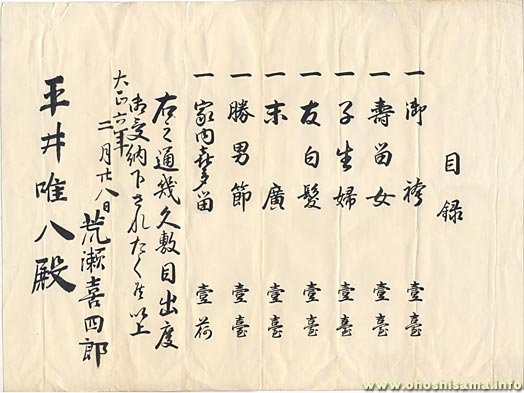 目録
一 御袴 壹臺
一 壽留女 壹臺
一 子生婦 壹臺
一 友白髮 壹臺
一 末廣 壹臺
一 勝男節 壹臺
一 家内喜多留 壹荷
右之通幾久敷目出度
御受納下されたく候以上
大正六年
二月廿八日
荒瀬喜四郎
平井唯八殿
www.ohoshisama.info